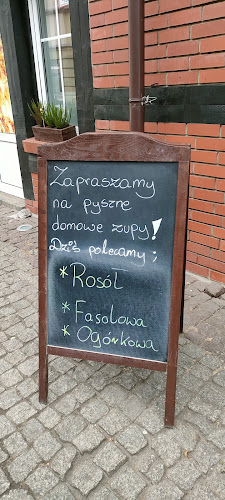 Zapraszamy
na pyszne
domowe zupy!
Dziś polecamy:
* Rosół
* Fasolowa
* Ogórkowa